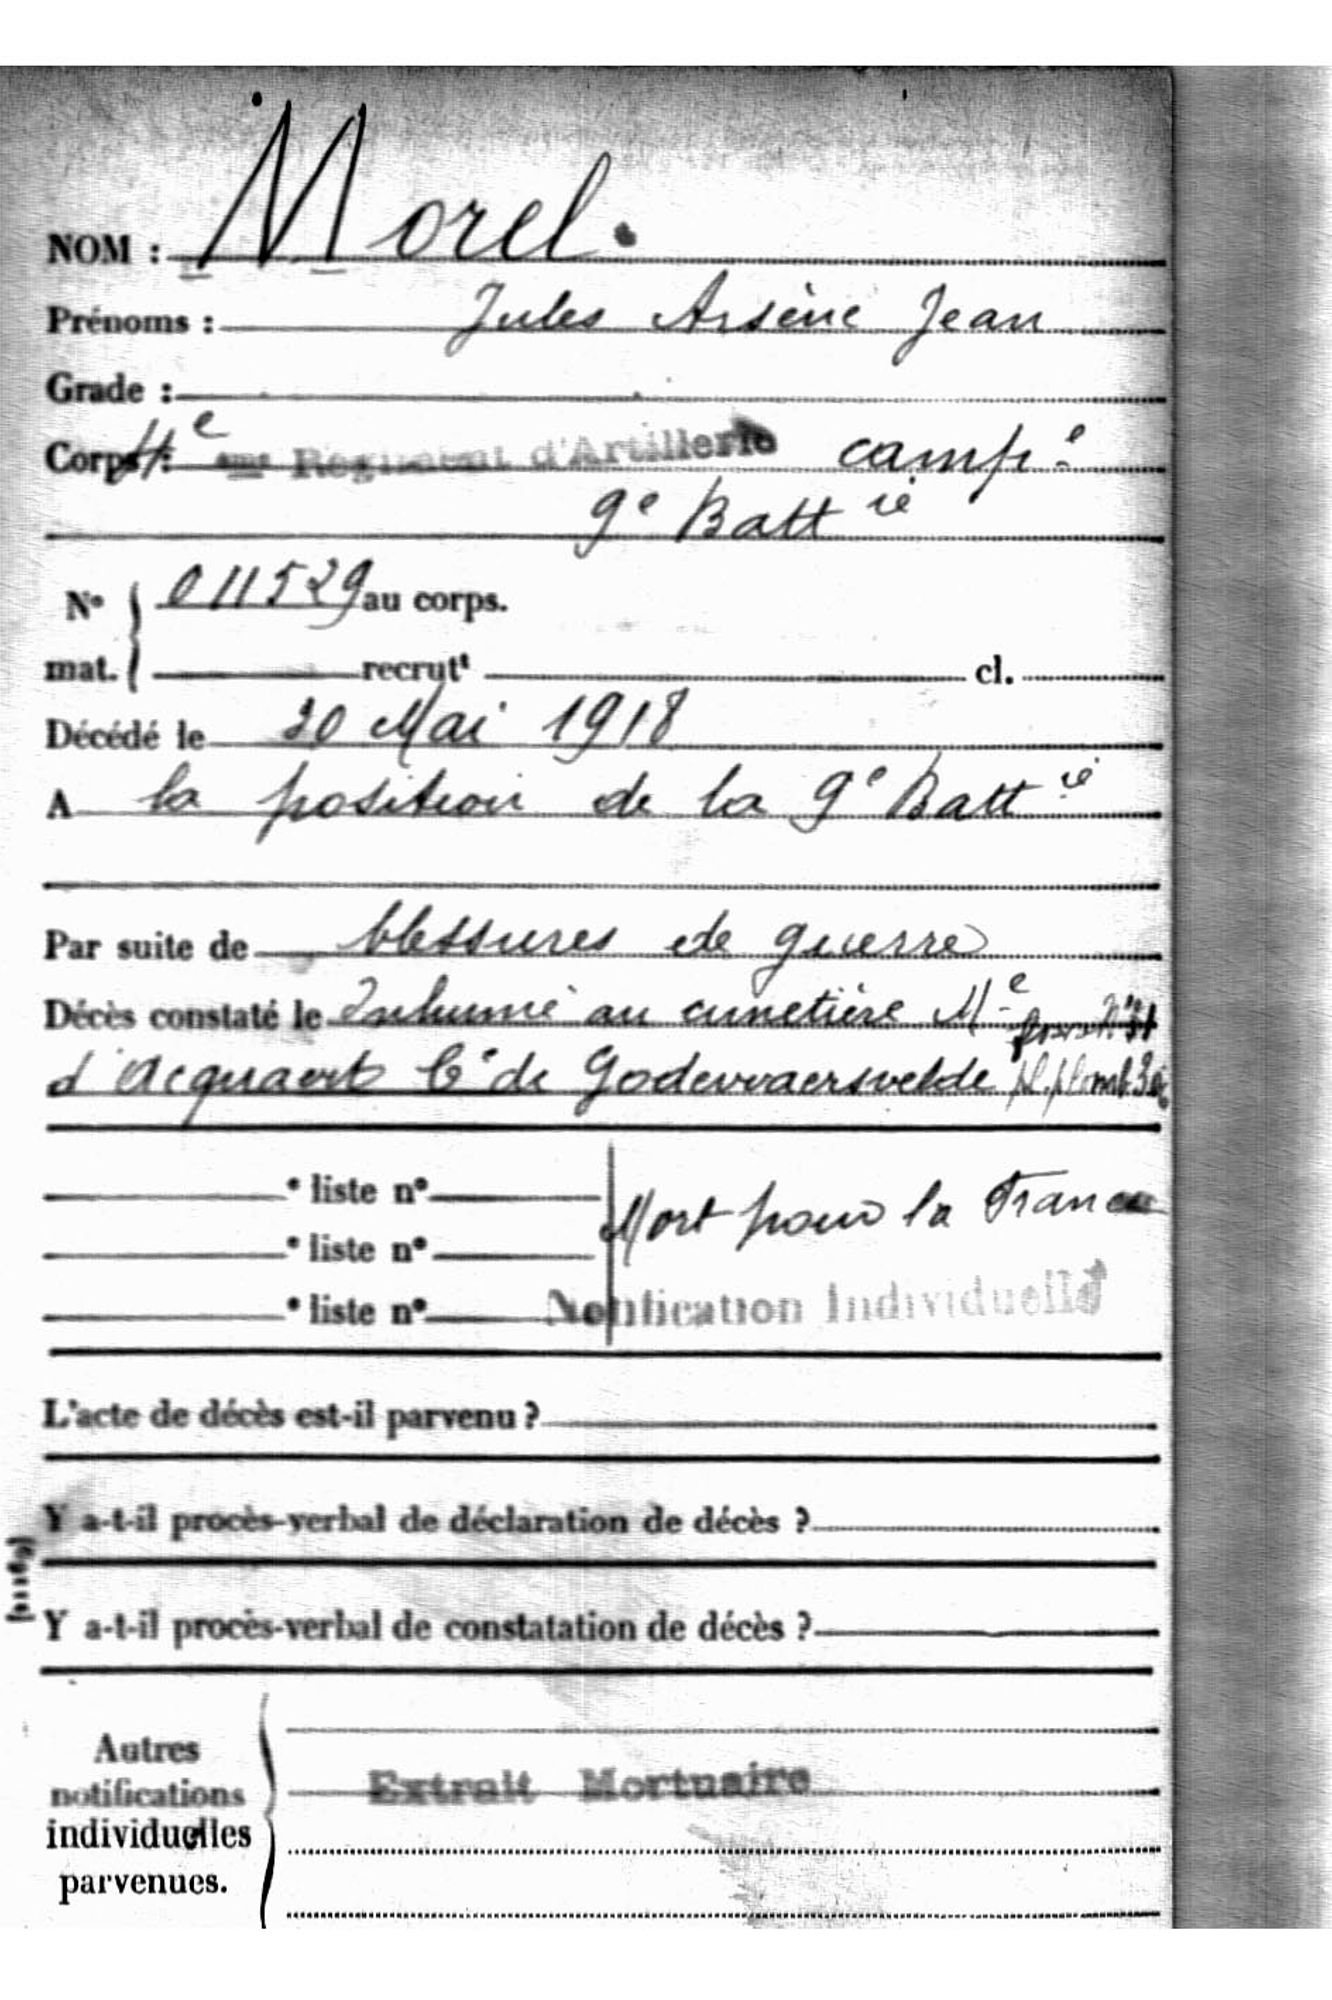 NOM : Morel.
Prénoms : Jules Arsène Jean
Grade :
Corps : e eme Régiment d'Artillerie campe
9e Battie
No 011529 au corps.
mat. recrutt cl.
Décédé le 20 Mai 1918
A la position de la 9e Battie
Par suite de blessures de guerre
Décès constaté le Inhumé au cimetière Me
d'Acquaert Ce de Godewaersvelde
e liste no
Mort pour la France
e liste no
e liste no
Notification Individuelle
L'acte de décès est-il parvenu ?
Y a-t-il procès-verbal de déclaration de décès ?
Y a-t-il procès-verbal de constatation de décès ?
Autres
notifications
individuelles
parvenues.
Extrait Mortuaire